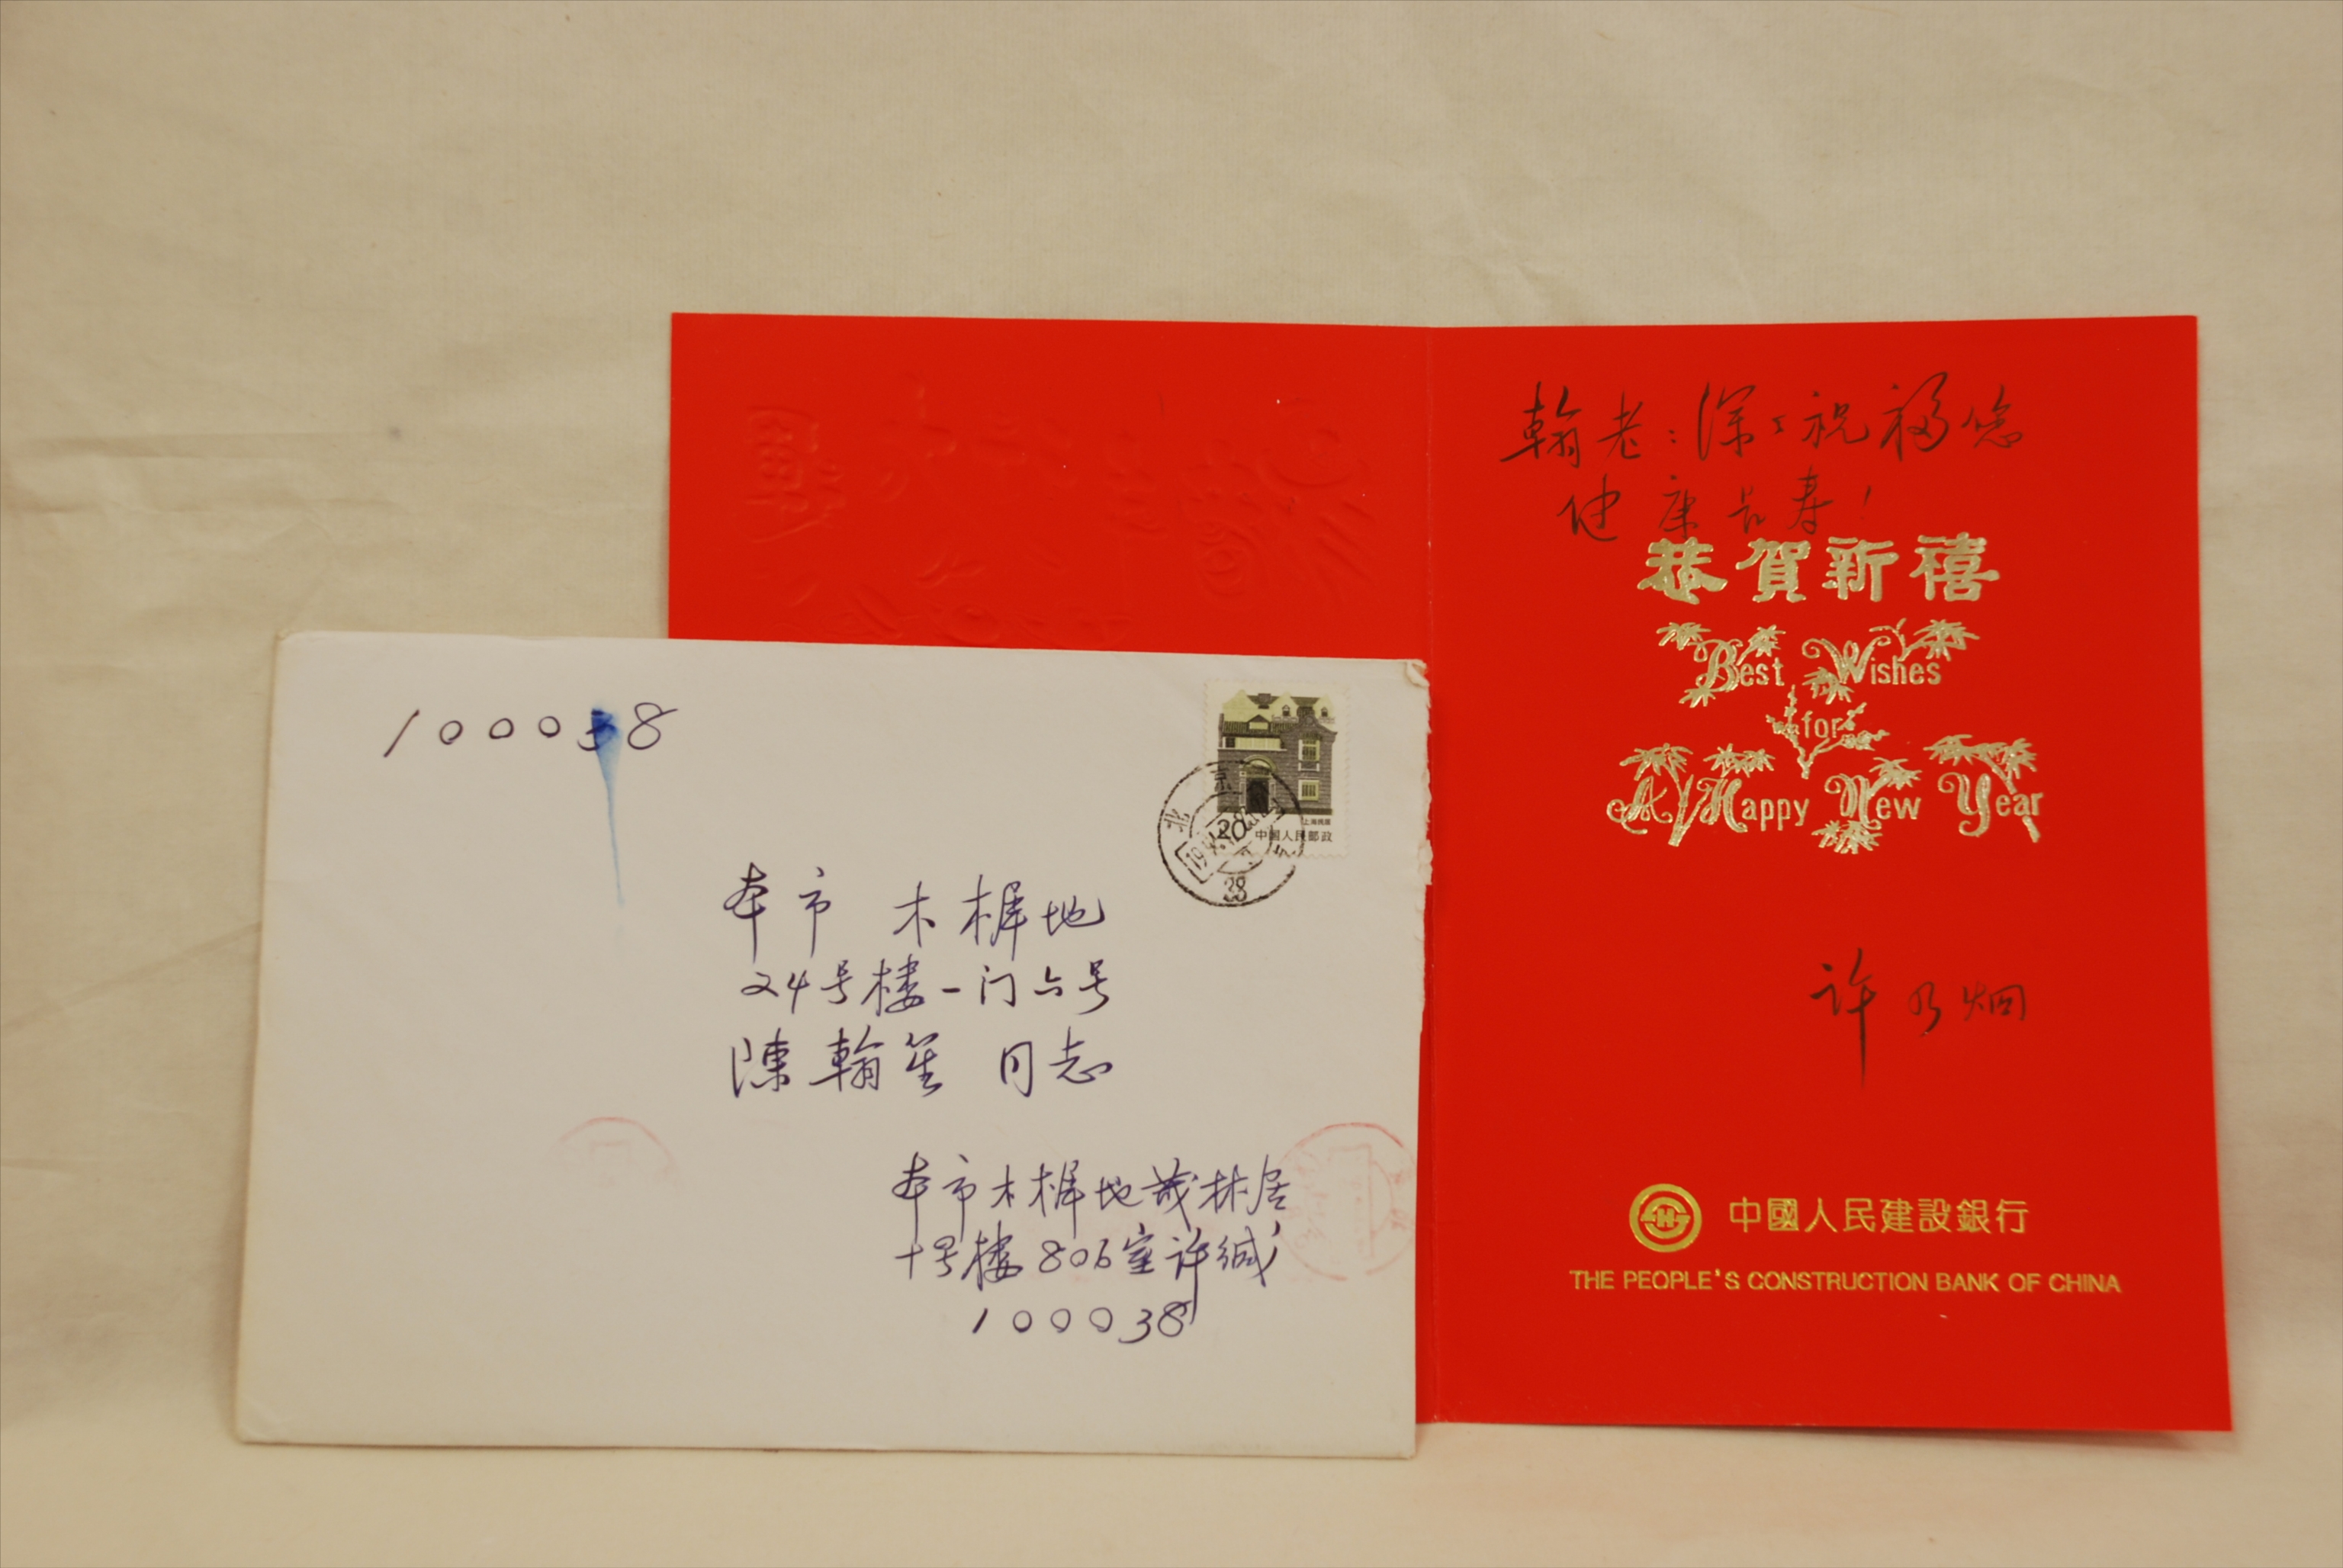 100038
本市 木樨地
24号楼一门六号
陳翰笙 同志
本市木樨地茂林居
十号楼806室许缄
100038
上海民居
20
中国人民邮政
北京
38
翰老：深〻祝福您
健康长寿！
恭賀新禧
Best Wishes
for
A Happy New Year
许乃炯
中國人民建設銀行
THE PEOPLE'S CONSTRUCTION BANK OF CHINA